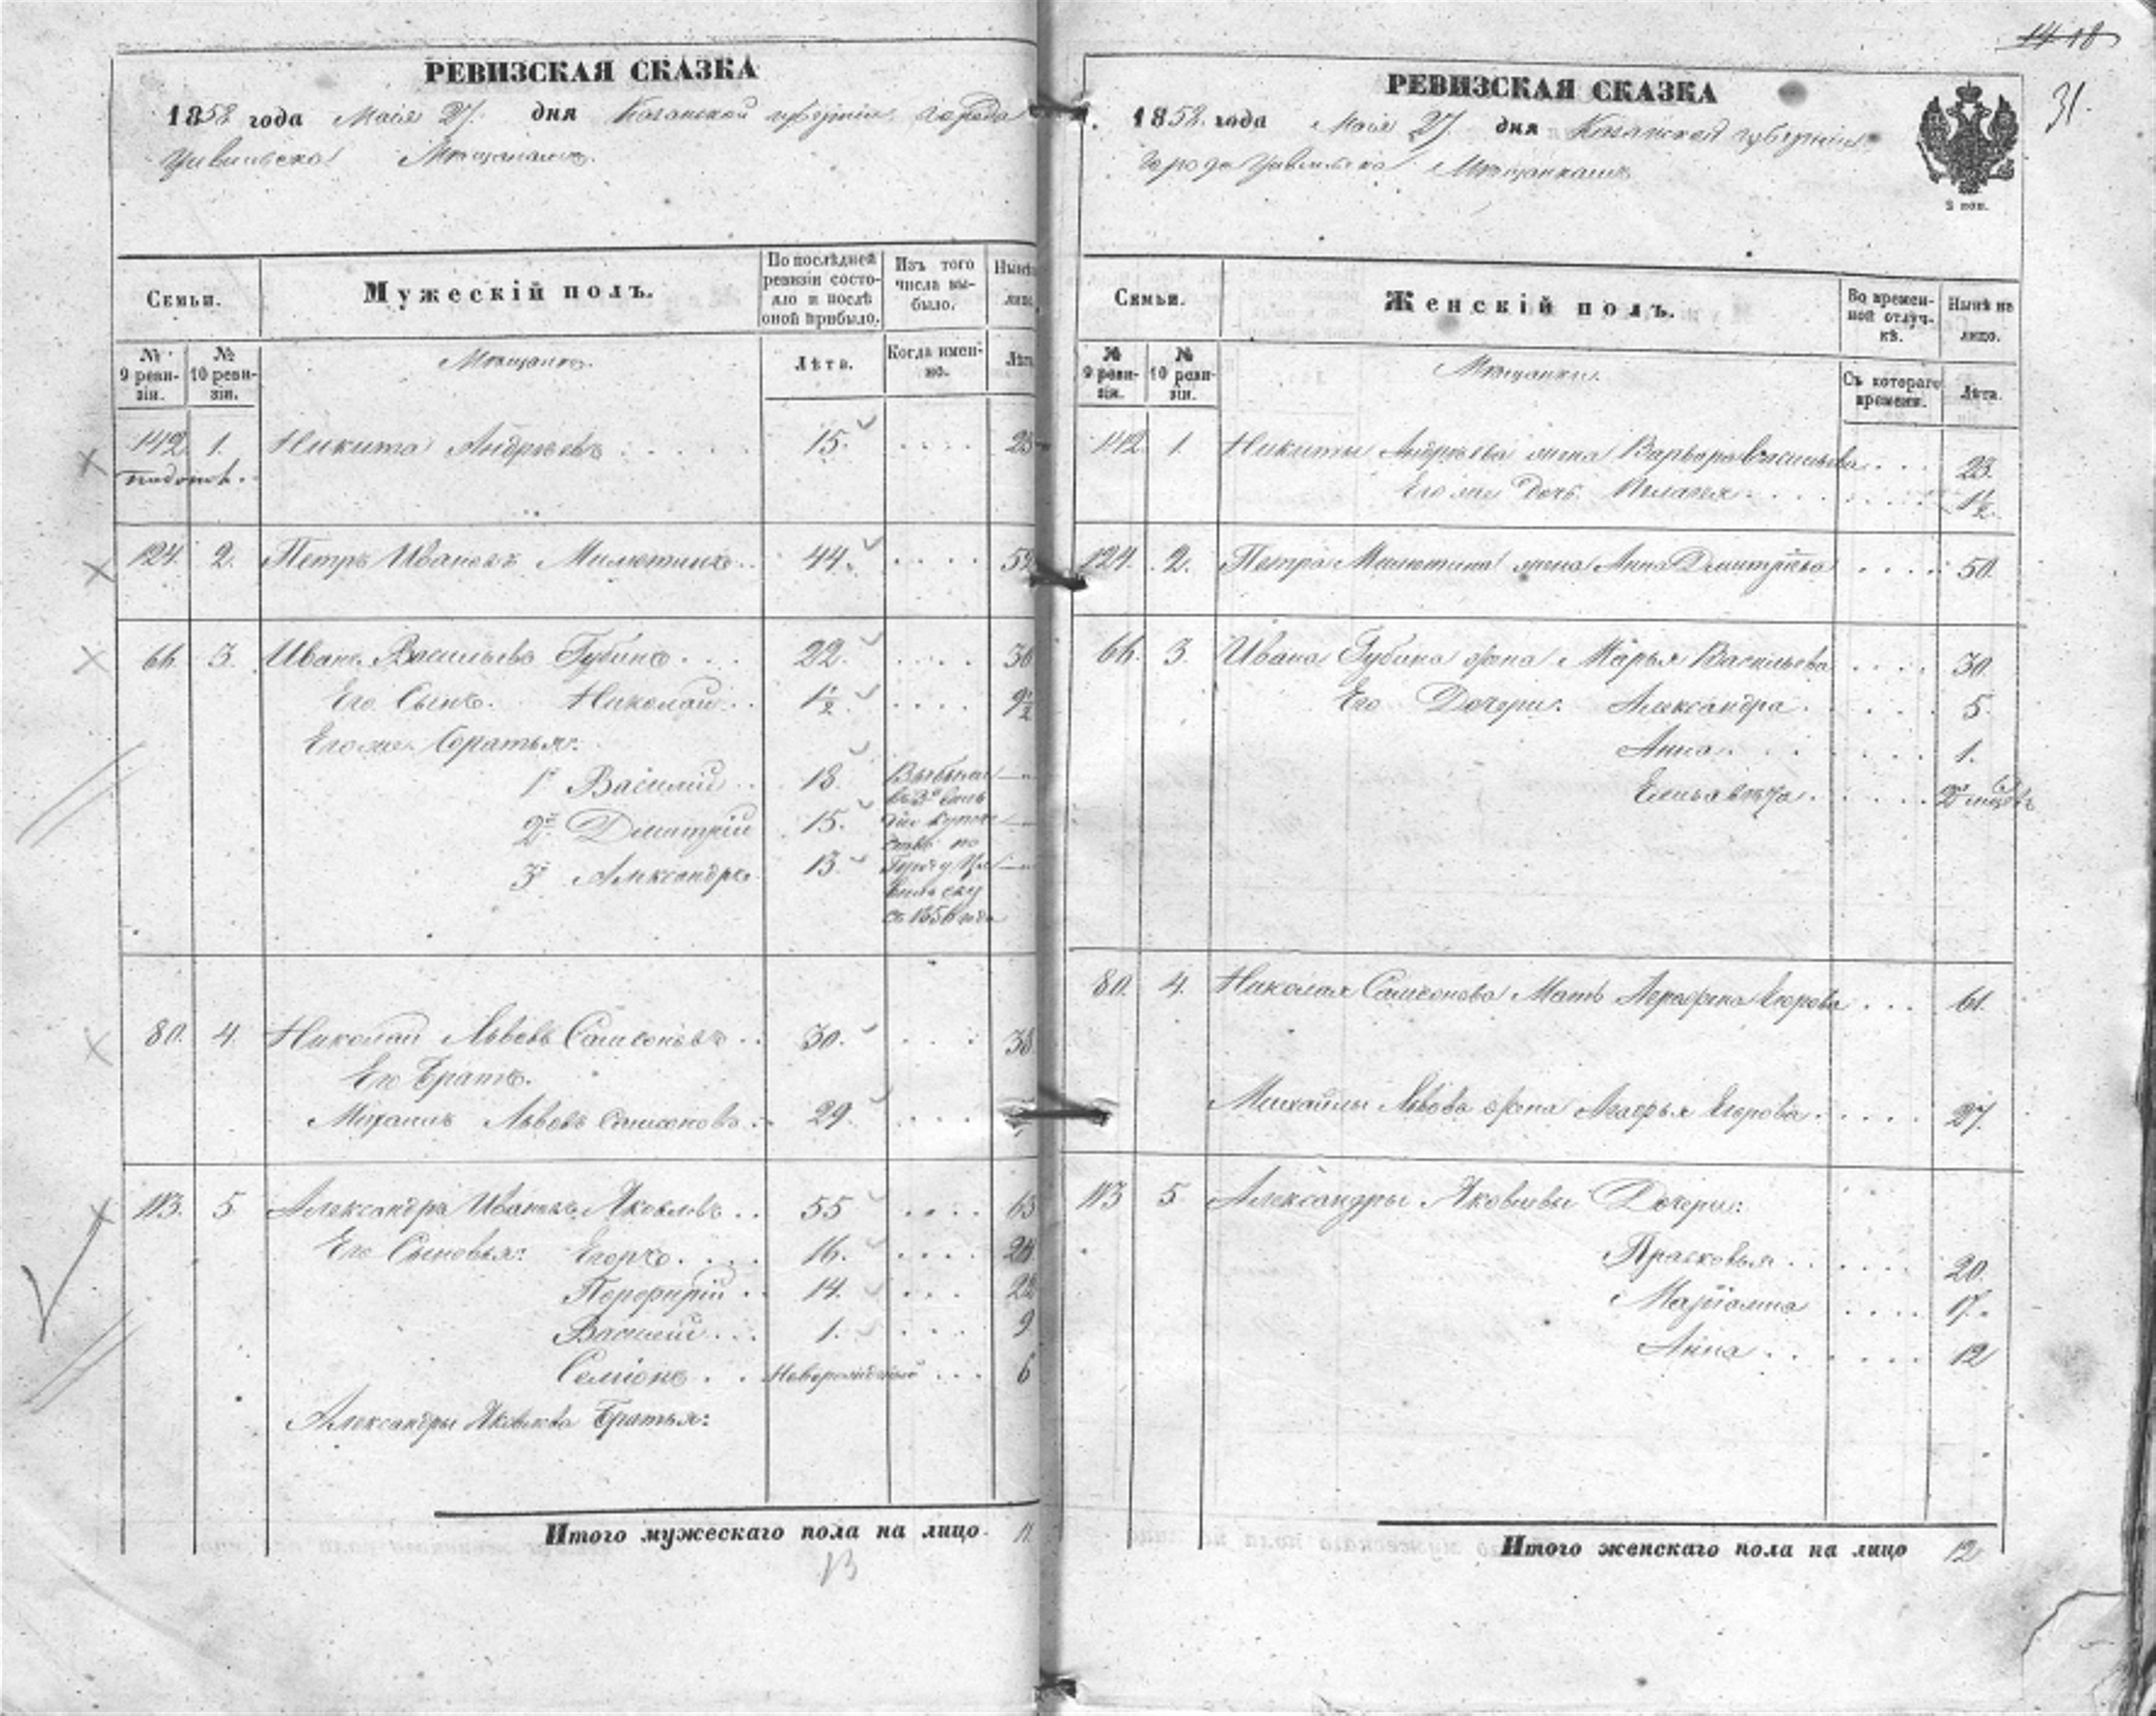 РЕВИЗСКАЯ СКАЗКА
1858 года Маія 27. дня Казанской губерніи города
Цивильска Мѣщанамъ.
Семьи.
Мужескій полъ.
По послѣдней ревизіи состояло и послѣ оной прибыло.
Изъ того числа выбыло.
Нынѣ
лицо
№ 9 ревизіи.
№ 10 ревизіи.
Мѣщане.
Лѣта.
Когда именно.
Лѣта
142. 1. Никита Андреевъ 15. 23
124. 2. Петръ Ивановъ Милютинъ 44. 52
66. 3. Иванъ Васильевъ Губинъ 22. 30
Его Сынъ. Николай 1½ 9½
Его же братья:
1й Василій 18. Выбыли
2й Дмитрій 15.
3й Александръ 13.
въ 3й
купече
по
Городу Ци
вильску
съ 1856 года
80. 4. Николай Львовъ Самсоновъ 30. 38
Его Братъ.
Михаилъ Львовъ Самсоновъ 29.
113. 5 Александръ Ивановъ Яковлевъ 55 63
Его Сыновья: Егоръ 16. 24
Перфирій 14. 22
Василій 1. 9
Семіонъ Новорожденный 6
Александры Яковлева Братья:
Итого мужескаго пола на лицо 11
13
14 18
31.
РЕВИЗСКАЯ СКАЗКА
1858 года Маія 27. дня Казанской губерніи
города Цивильска Мѣщанкамъ
3 коп.
Семьи.
Женскій полъ.
Во временной отлучкѣ.
Нынѣ на лицо.
№ 9 ревизіи.
№ 10 ревизіи.
Мѣщанки.
Съ котораго времени.
Лѣта.
142. 1. Никиты Андреева жена Варвара Васильева 23.
Его же Дочь Пелагея 1½
124. 2. Петра Милютина жена Анна Дмитріева 50.
66. 3. Ивана Губина жена Марья Васильева 30.
Его Дочери: Александра 5.
Анна 1.
Елизавета 2х
80. 4. Николая Самсонова Мать Аграфена Егорова 61.
Михайлы Львова жена Агафья Егорова 27.
113 5 Александры Яковлевы Дочери:
Прасковья 20.
Маріамна 17.
Анна 12
Итого женскаго пола на лицо 12